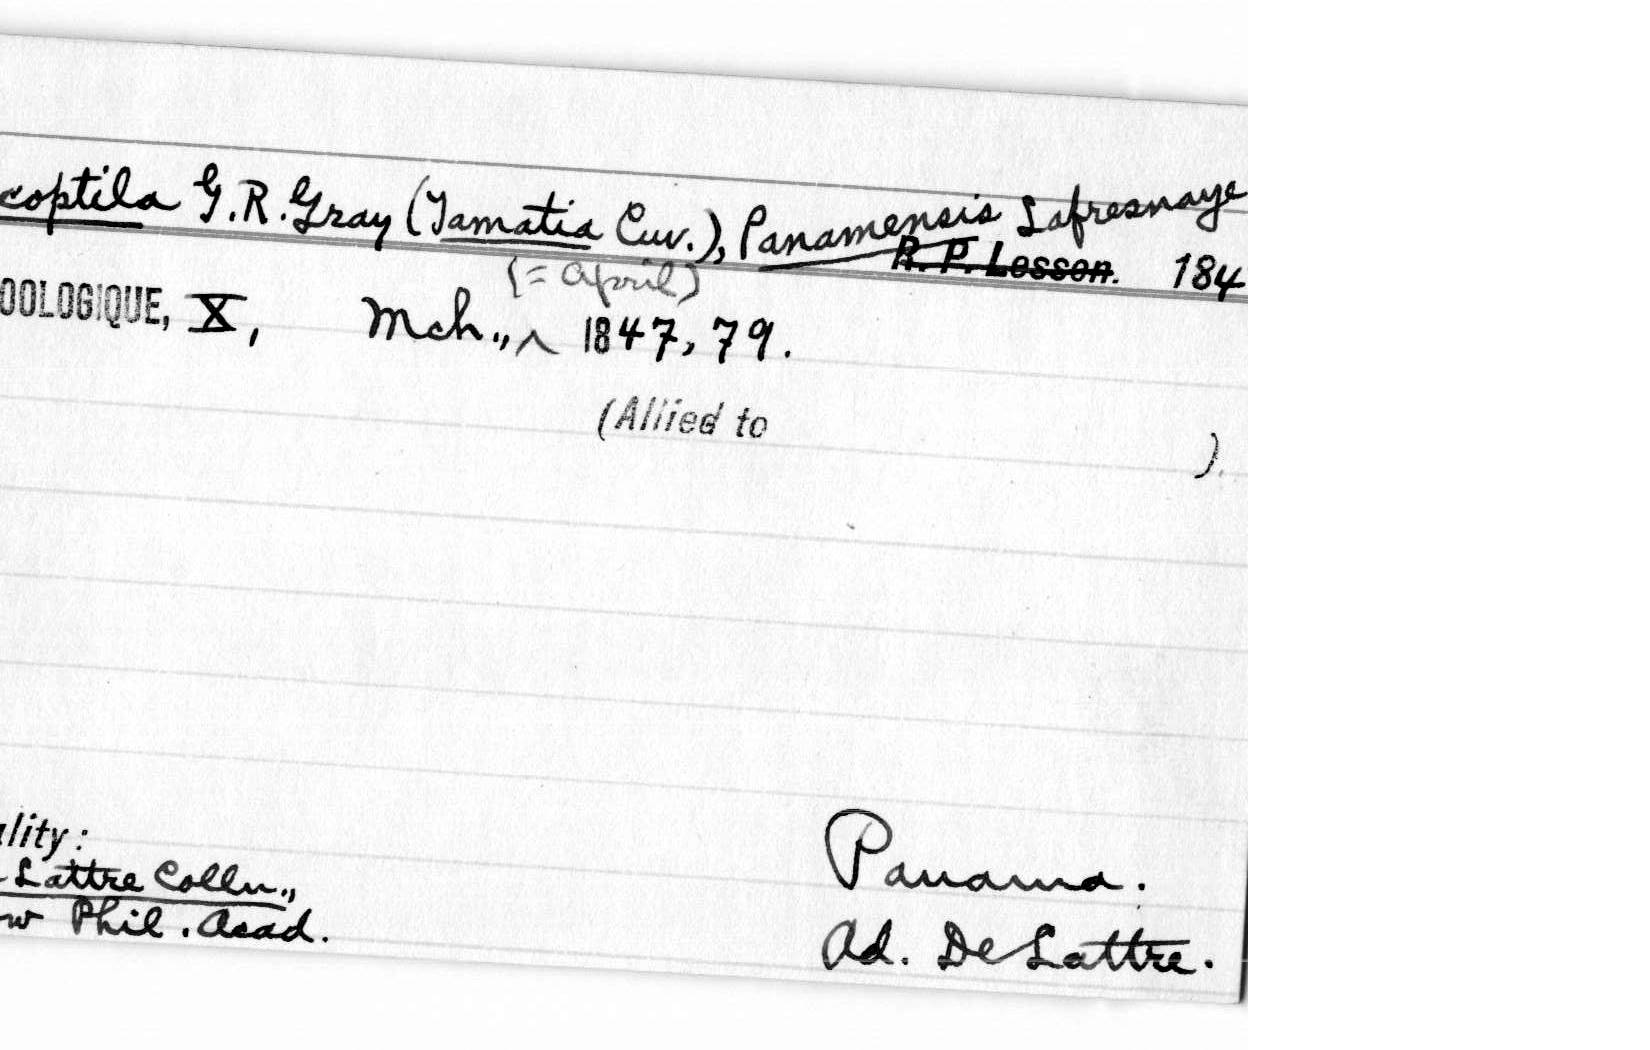 coptila G.R.Gray (Tamatia Cuv.), Panamensis Lafresnaye
R. P. Lesson. 184
(= april)
OOLOGIQUE, X, Mch., ^ 1847, 79.
(Allied to )
lity:
Lattre Colln., Panama.
w Phil. Acad. Ad. De Lattre.